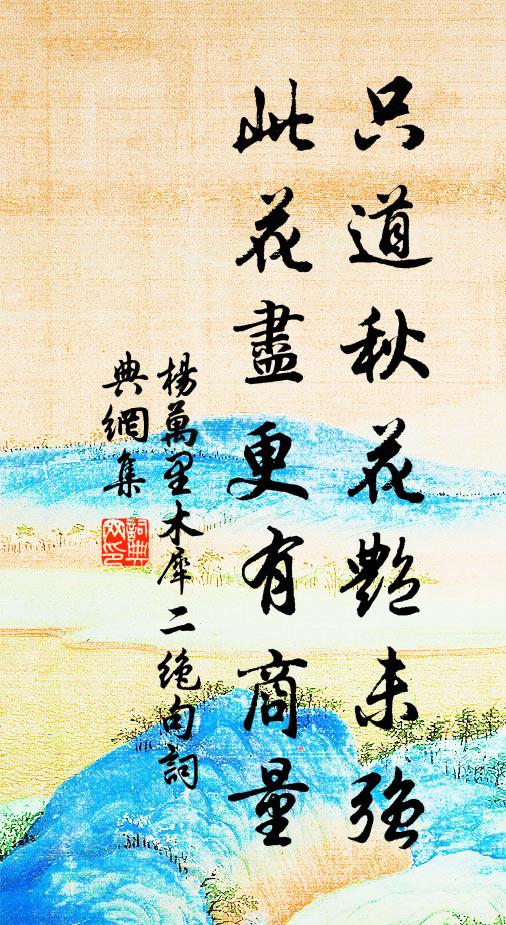 只道秋花艷未強
此花盡更有商量
楊萬里木犀二绝句詞
典網集
詞典网印